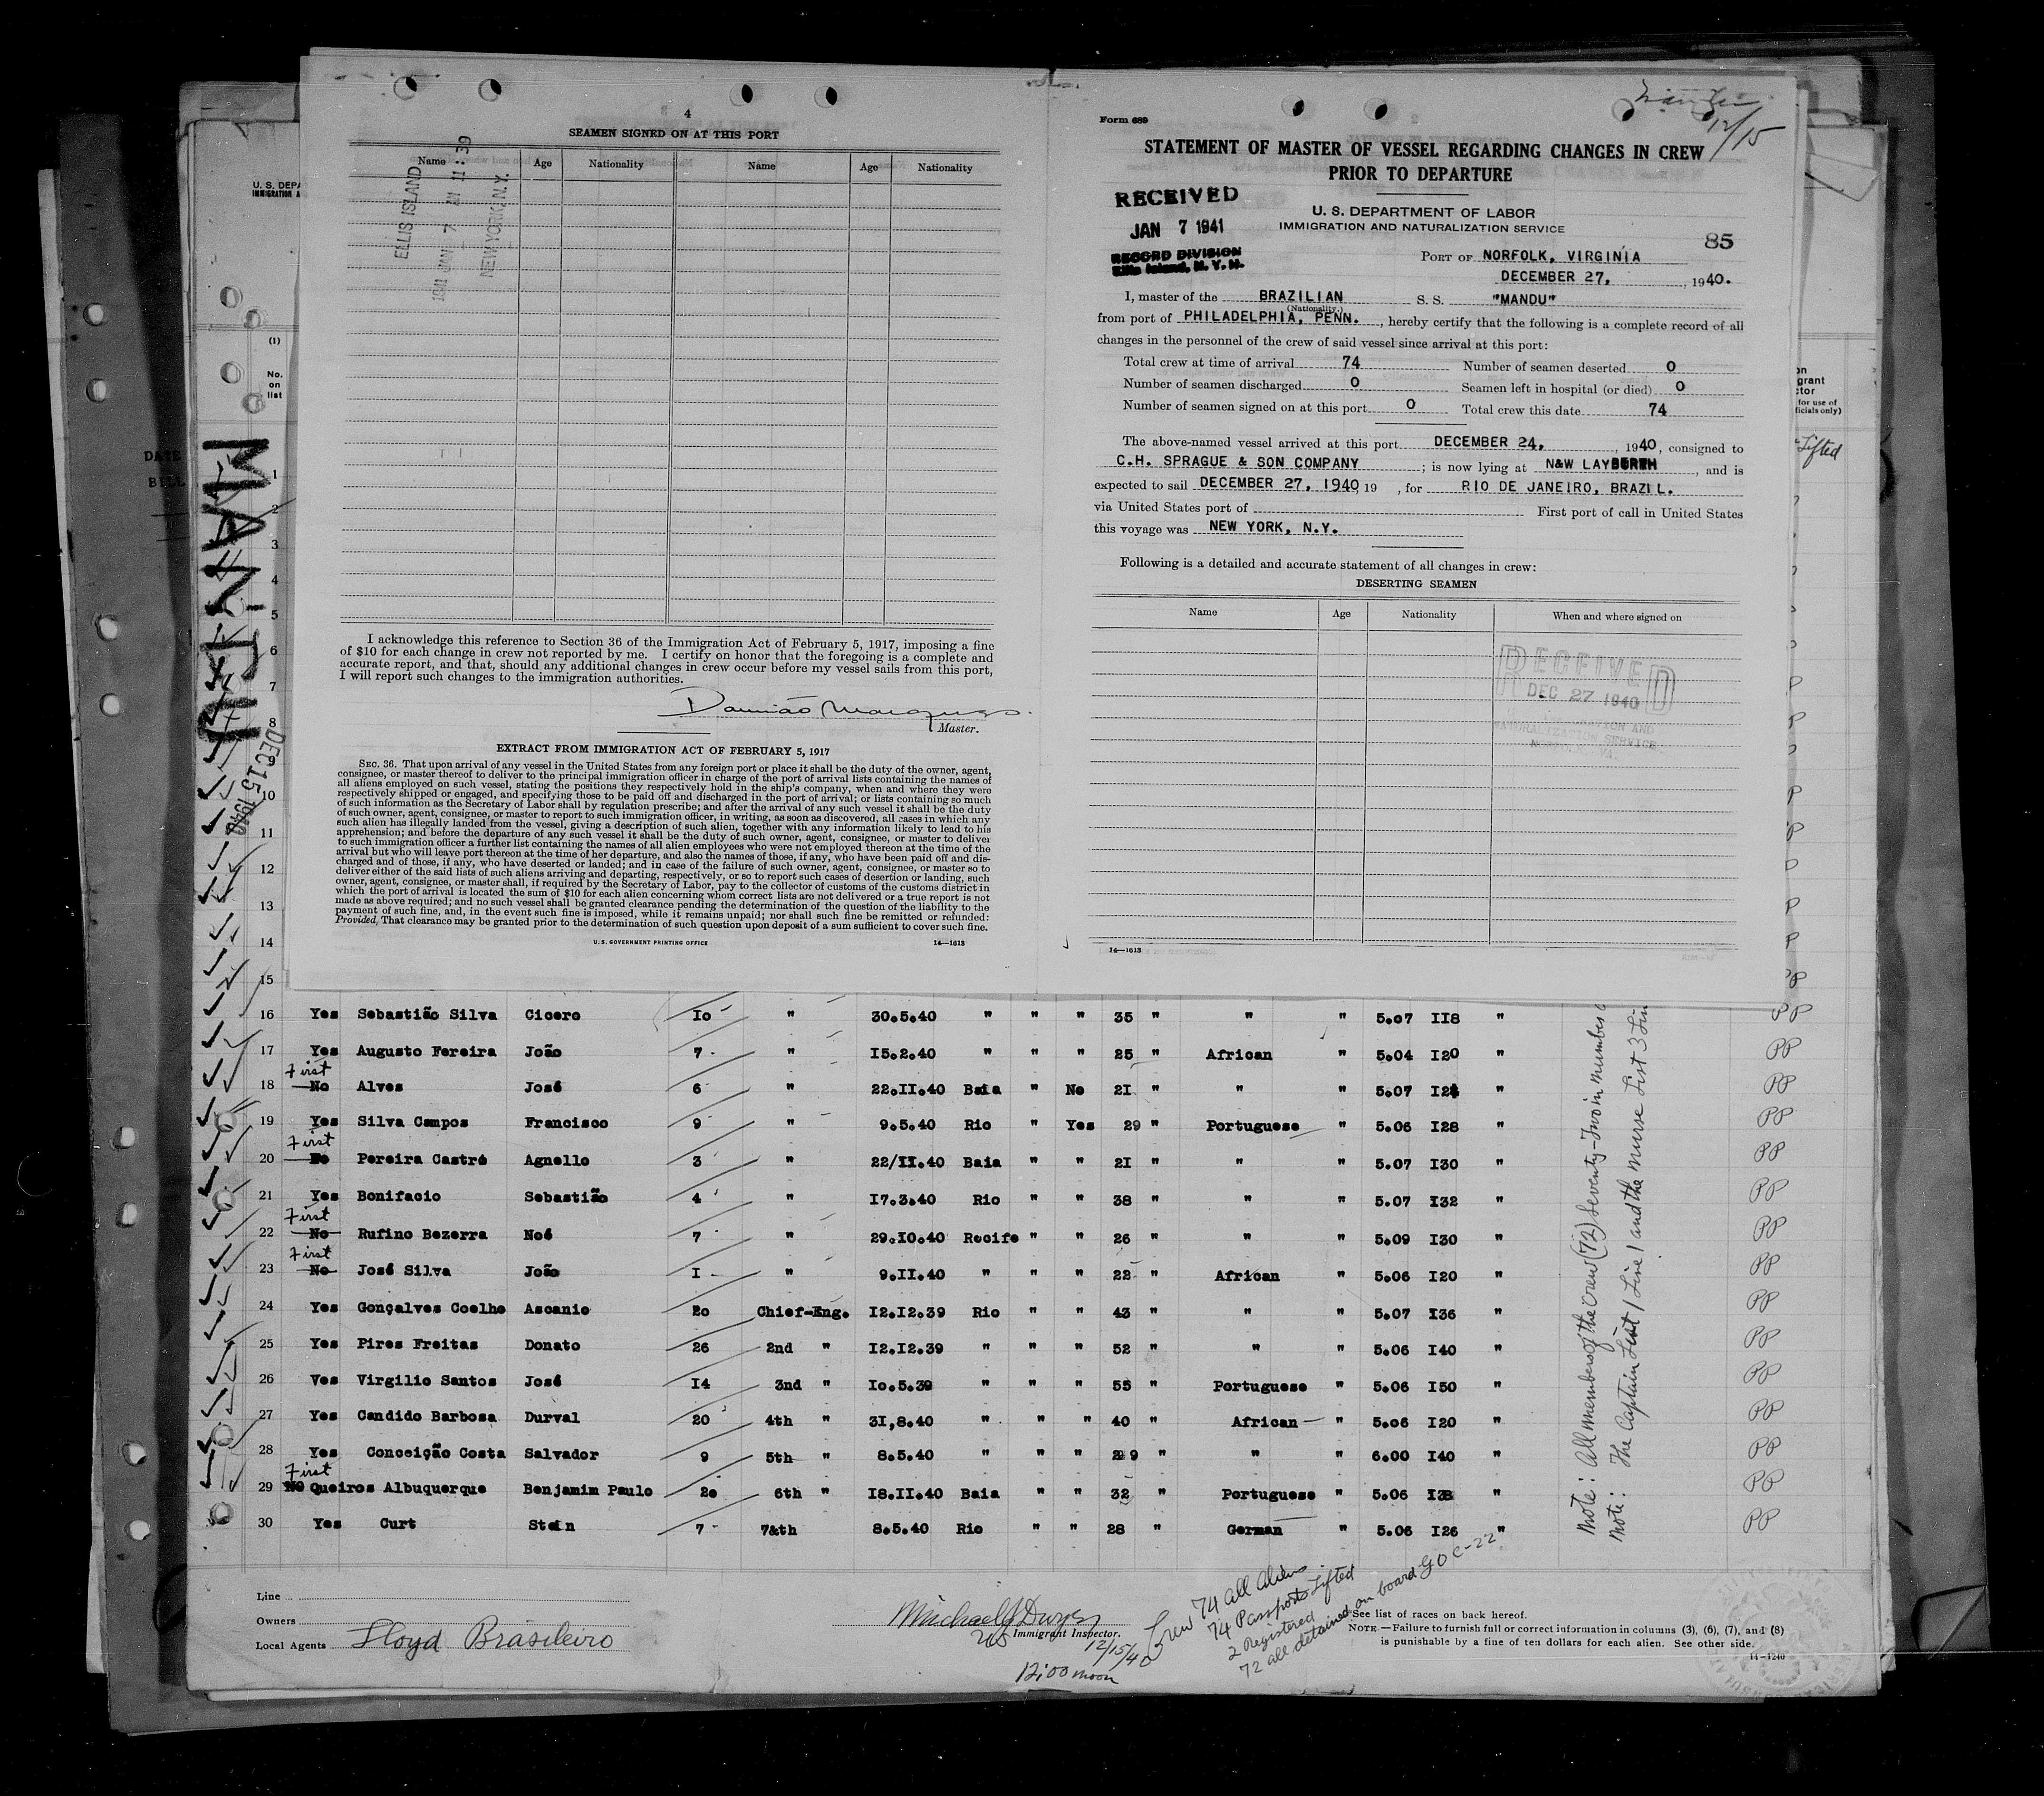 4
SEAMEN SIGNED ON AT THIS PORT
Name Age Nationality Name Age Nationality
ELLIS ISLAND
1941 JAN 7 AM 11:39
NEW YORK, N.Y.
I acknowledge this reference to Section 36 of the Immigration Act of February 5, 1917, imposing a fine
of $10 for each change in crew not reported by me. I certify on honor that the foregoing is a complete and
accurate report, and that, should any additional changes in crew occur before my vessel sails from this port,
I will report such changes to the immigration authorities.
Damião Marques
Master.
EXTRACT FROM IMMIGRATION ACT OF FEBRUARY 5, 1917
SEC. 36. That upon arrival of any vessel in the United States from any foreign port or place it shall be the duty of the owner, agent,
consignee, or master thereof to deliver to the principal immigration officer in charge of the port of arrival lists containing the names of
all aliens employed on such vessel, stating the positions they respectively hold in the ship's company, when and where they were
respectively shipped or engaged, and specifying those to be paid off and discharged in the port of arrival; or lists containing so much
of such information as the Secretary of Labor shall by regulation prescribe; and after the arrival of any such vessel it shall be the duty
of such owner, agent, consignee, or master to report to such immigration officer, in writing, as soon as discovered, all cases in which any
such alien has illegally landed from the vessel, giving a description of such alien, together with any information likely to lead to his
apprehension; and before the departure of any such vessel it shall be the duty of such owner, agent, consignee, or master to deliver
to such immigration officer a further list containing the names of all alien employees who were not employed thereon at the time of the
arrival but who will leave port thereon at the time of her departure, and also the names of those, if any, who have been paid off and dis-
charged and of those, if any, who have deserted or landed; and in case of the failure of such owner, agent, consignee, or master so to
deliver either of the said lists of such aliens arriving and departing, respectively, or so to report such cases of desertion or landing, such
owner, agent, consignee, or master shall, if required by the Secretary of Labor, pay to the collector of customs of the customs district in
which the port of arrival is located the sum of $10 for each alien concerning whom correct lists are not delivered or a true report is not
made as above required; and no such vessel shall be granted clearance pending the determination of the question of the liability to the
payment of such fine, and, in the event such fine is imposed, while it remains unpaid; nor shall such fine be remitted or refunded:
Provided, That clearance may be granted prior to the determination of such question upon deposit of a sum sufficient to cover such fine.
U. S. GOVERNMENT PRINTING OFFICE 14—1613
12/15
Form 689
STATEMENT OF MASTER OF VESSEL REGARDING CHANGES IN CREW
PRIOR TO DEPARTURE
RECEIVED
JAN 7 1941
RECORD DIVISION
Ellis Island, N. Y. H.
U. S. DEPARTMENT OF LABOR
IMMIGRATION AND NATURALIZATION SERVICE
85
PORT OF NORFOLK, VIRGINIA
DECEMBER 27, 1940.
I, master of the BRAZILIAN S. S. "MANDU"
(Nationality.)
from port of PHILADELPHIA, PENN. , hereby certify that the following is a complete record of all
changes in the personnel of the crew of said vessel since arrival at this port:
Total crew at time of arrival 74 Number of seamen deserted 0
Number of seamen discharged 0 Seamen left in hospital (or died) 0
Number of seamen signed on at this port 0 Total crew this date 74
The above-named vessel arrived at this port DECEMBER 24, , 1940, consigned to
C.H. SPRAGUE & SON COMPANY ; is now lying at N&W LAYBERTH , and is
expected to sail DECEMBER 27, 1940 19 , for RIO DE JANEIRO, BRAZIL.
via United States port of First port of call in United States
this voyage was NEW YORK, N.Y.
Following is a detailed and accurate statement of all changes in crew:
DESERTING SEAMEN
Name Age Nationality When and where signed on
RECEIVED
DEC 27 1940
14—1613
U. S. DEPA
IMMIGRATION A
(1)
No.
on
list
DATE
BILL
MANDU
DEC 15 1940
Lifted
1
2
3
4
5
6
7
8
9
10
11
12
13
14
15
16 Yes Sebastião Silva Cicero 10 " 30.5.40 " " " 35 " " " 5.07 118 " PP
17 Yes Augusto Fereira João 7 " 15.2.40 " " " 25 " African " 5.04 120 " PP
First
18 No Alves José 6 " 22.11.40 Baia " No 21 " " " 5.07 124 " PP
19 Yes Silva Campos Francisco 9 " 9.5.40 Rio " Yes 29 " Portuguese " 5.06 128 " PP
First
20 No Pereira Castro Agnello 3 " 22/11.40 Baia " " 21 " " " 5.07 130 " PP
21 Yes Bonifacio Sebastião 4 " 17.3.40 Rio " " 38 " " " 5.07 132 " PP
First
22 No Rufino Bezerra Noé 7 " 29.10.40 Recife " " 26 " " " 5.09 130 " PP
First
23 No José Silva João 1 " 9.11.40 " " " 22 " African " 5.06 120 " PP
24 Yes Gonçalves Coelho Ascanio 20 Chief-Eng. 12.12.39 Rio " " 43 " " " 5.07 136 " PP
25 Yes Pires Freitas Donato 26 2nd " 12.12.39 " " " 52 " " " 5.06 140 " PP
26 Ves Virgilio Santos José 14 3nd " 10.5.39 " " " 55 " Portuguese " 5.06 150 " PP
27 Yes Candido Barbosa Durval 20 4th " 31,8.40 " " " 40 " African " 5.06 120 " PP
28 Yes Conceição Costa Salvador 9 5th " 8.5.40 " " " 29 " " " 6.00 140 " PP
First
29 No Queiros Albuquerque Benjamim Paulo 20 6th " 18.11.40 Baia " " 32 " Portuguese " 5.06 138 " PP
30 Yes Curt Stein 7 7&th 8.5.40 Rio " " 28 " German " 5.06 126 " PP
Note: All members of the crew (72) Seventy-Two in number
Note: The Captain List 1 Line 1 and the Nurse List 3 Lin
Line
Owners
Local Agents Lloyd Brasileiro
Michael J Dwyer
US Immigrant Inspector.
12/15/40
12:00 noon
Crew 74 all aliens
74 Passports Lifted
2 Registered
72 all detained on board GO C-22
See list of races on back hereof.
NOTE.—Failure to furnish full or correct information in columns (3), (6), (7), and (8)
is punishable by a fine of ten dollars for each alien. See other side.
14—1240